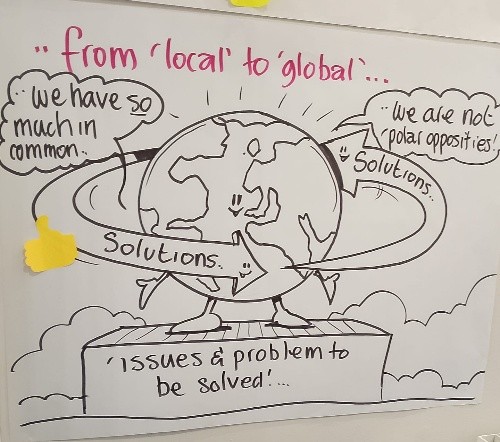 .. from 'local' to 'global'...
.. we have so
much in
common..
.. we are not
'polar opposities'!
Solutions..
Solutions..
'issues & problem to
be solved'...